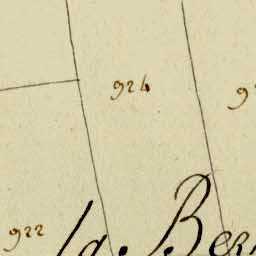 924
922
la Ber